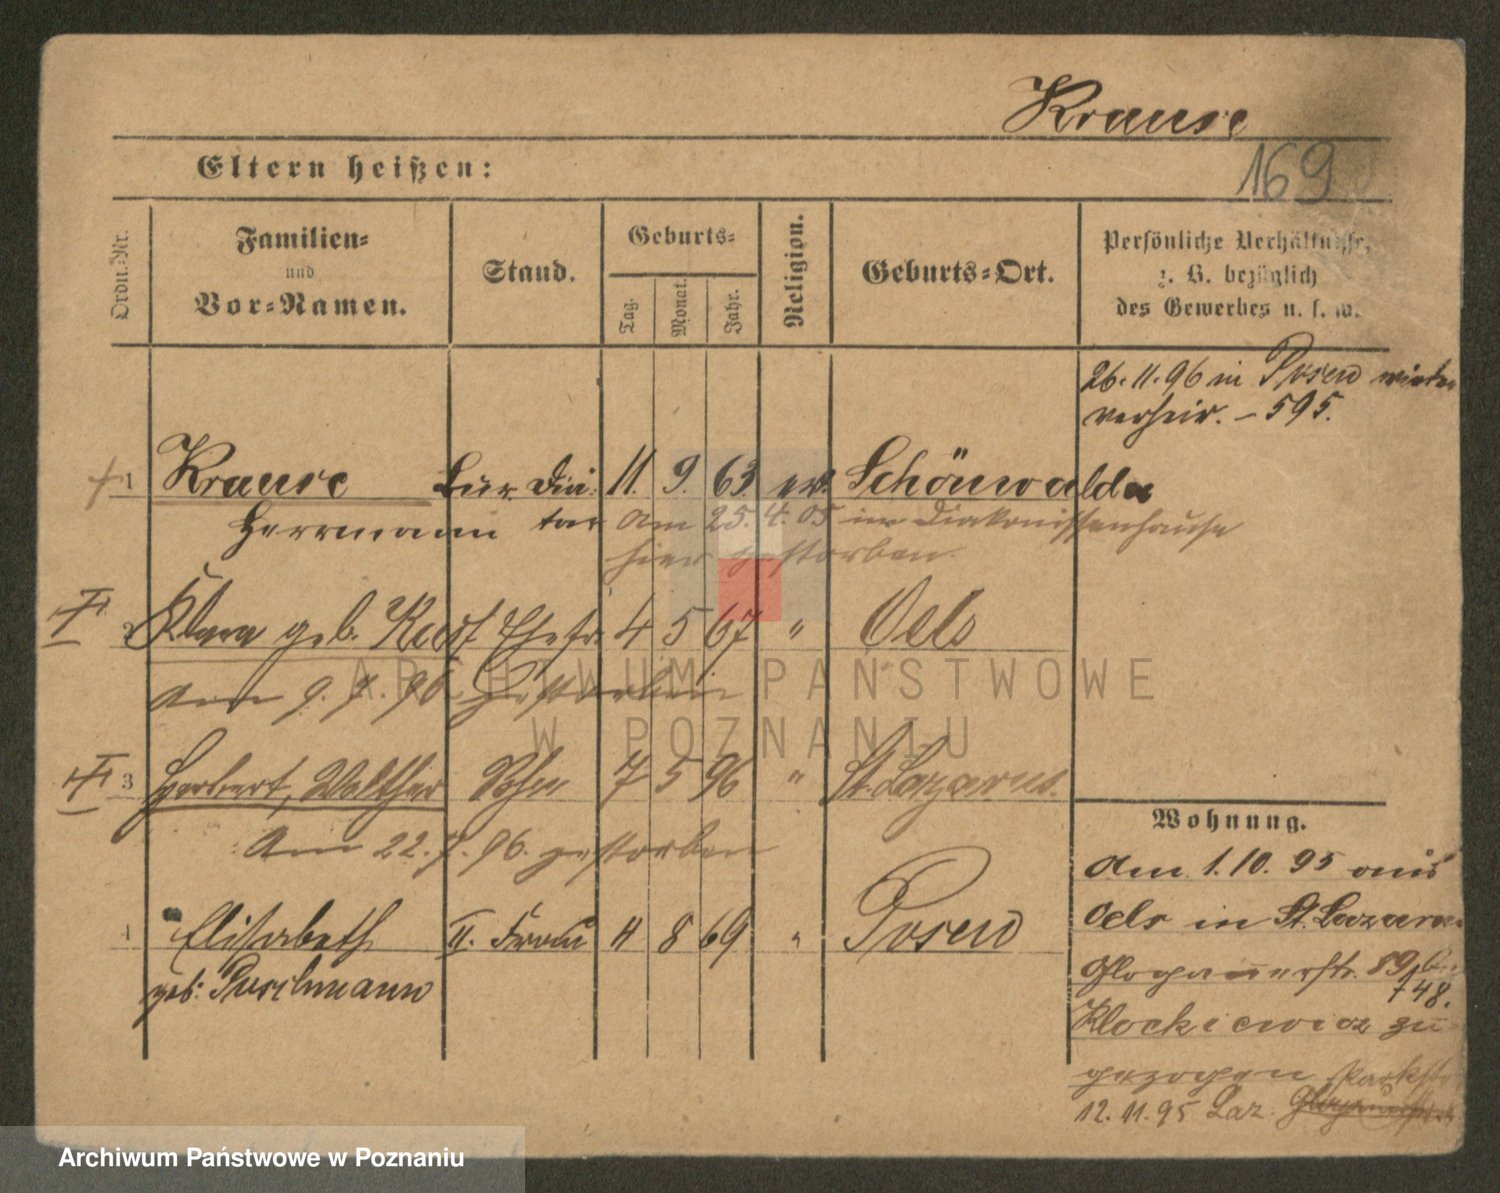 Krause
169
Eltern heißen:
Ordn.-Nr.
Familien-
und
Vor-Namen.
Stand.
Geburts-
Tag.
Monat.
Jahr.
Religion.
Geburts-Ort.
Persönliche Verhältnisse,
z. B. bezüglich
des Gewerbes u. s. w.
26.11.96 in Posen wieder
verheir. – 595.
1 Krause Bur. Diä- 11. 9. 63. ev. Schönwalde
Herrmann tar am 25.4.05 im Diakonissenhause
hier gestorben
2 Klara geb. Ehefr. 4 5 67 " Oels
am 9. 7. 96 gestorben
3 Herbert, Walther Sohn 7 5 96 " St. Lazarus.
Am 22.7.96. gestorben
4 Elisabeth II. Frau 11 8 69 " Posen
geb: Puschmann
Wohnung.
Am 1.10.95 aus
Oels in St. Lazarus
Glogauerstr. 89 bei
748.
Klockiewicz zu
gezogen Parkstr
12.11.95 Laz.
ARCHIWUM PAŃSTWOWE
W POZNANIU
Archiwum Państwowe w Poznaniu